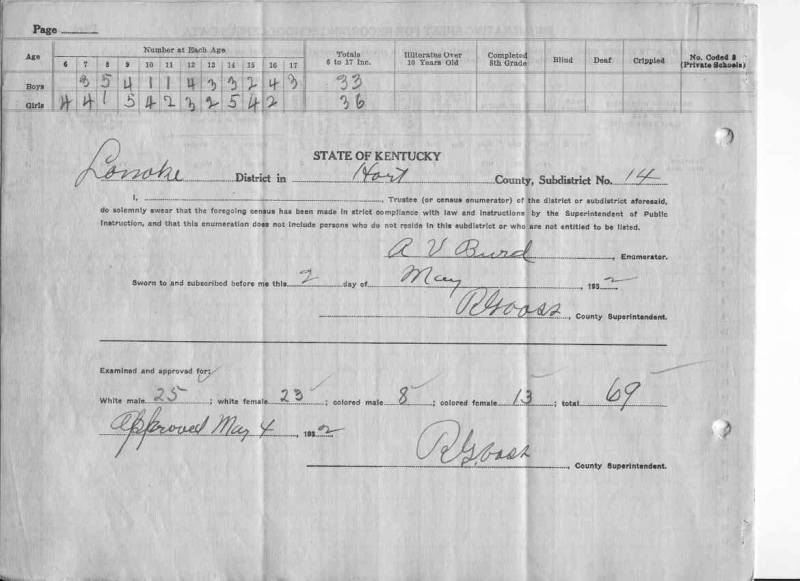 Page
Age Number at Each Age Totals 6 to 17 Inc. Illiterates Over 10 Years Old Completed 8th Grade Blind Deaf Crippled No. Coded 8 (Private Schools)
6 7 8 9 10 11 12 13 14 15 16 17
Boys 3 5 4 1 1 4 3 3 2 4 3 33
Girls 4 4 1 5 4 2 3 2 5 4 2 36
STATE OF KENTUCKY
Lonoke District in Hart County, Subdistrict No. 14
I, , Trustee (or census enumerator) of the district or subdistrict aforesaid,
do solemnly swear that the foregoing census has been made in strict compliance with law and instructions by the Superintendent of Public
Instruction, and that this enumeration does not include persons who do not reside in this subdistrict or who are not entitled to be listed.
A V Burd, Enumerator.
Sworn to and subscribed before me this 2 day of May, 1932
, County Superintendent.
Examined and approved for:
White male 25; white female 23; colored male 8; colored female 13; total 69
Approved May 4, 1932
, County Superintendent.